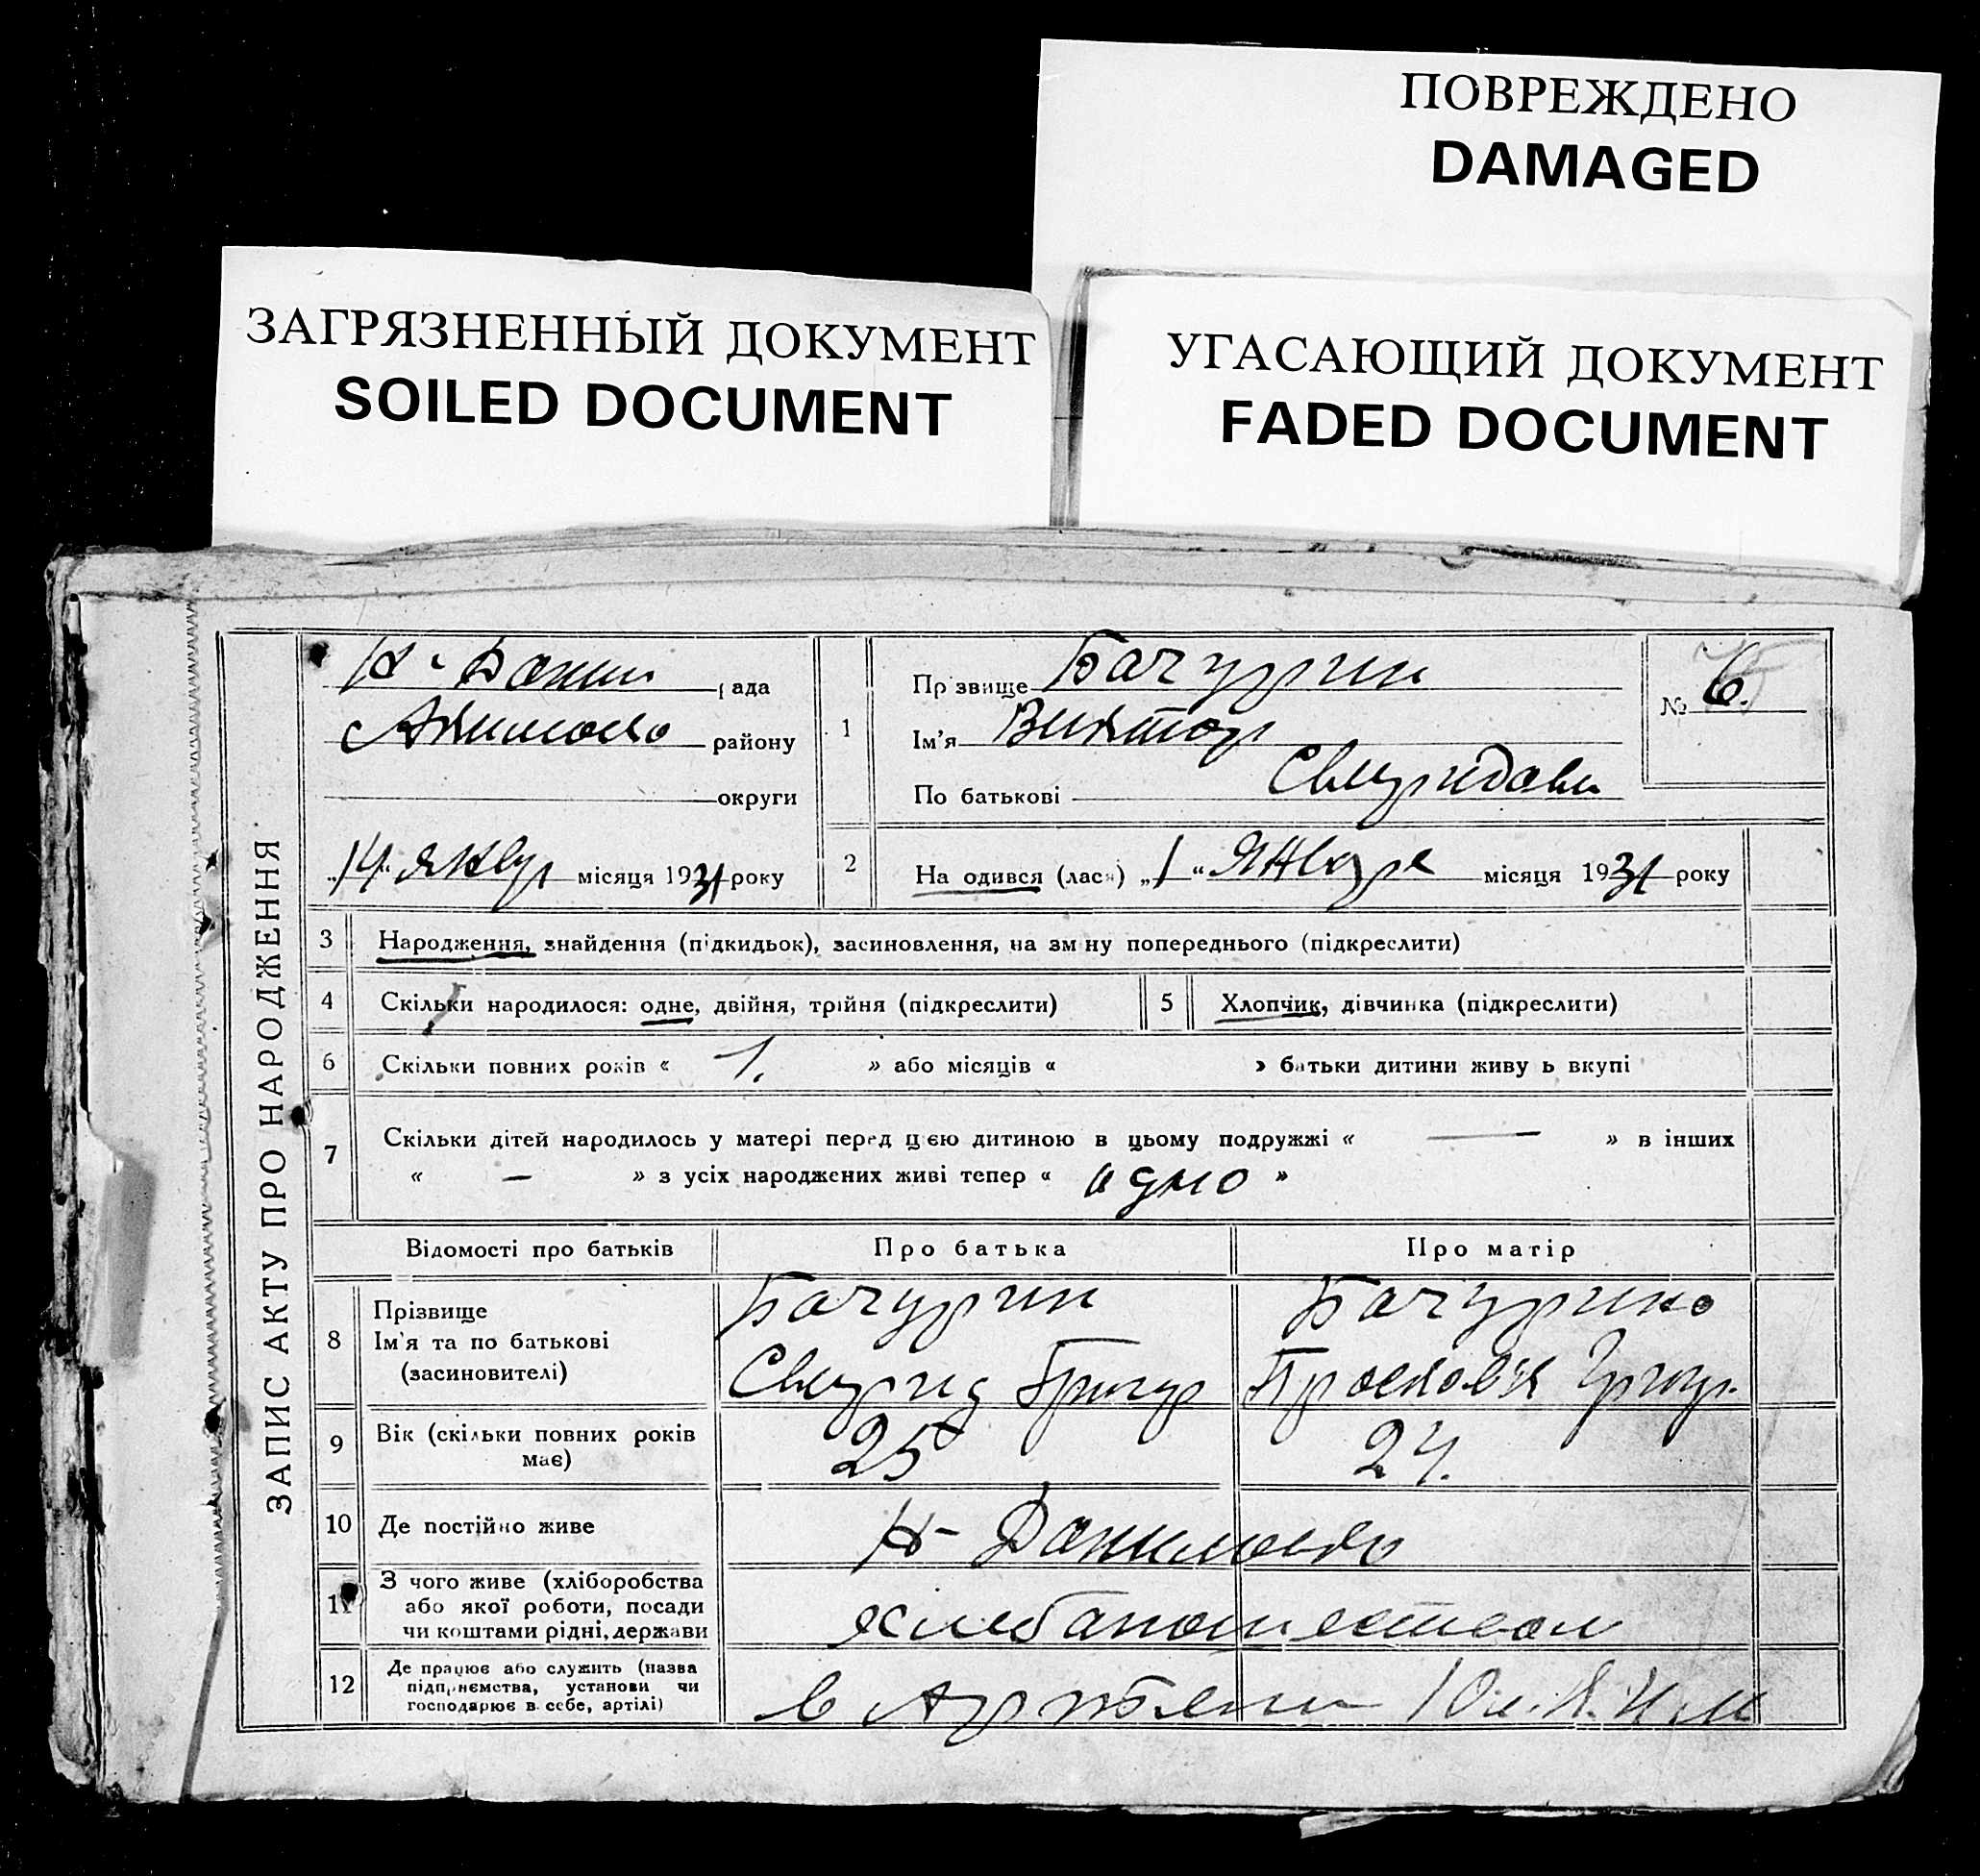 ПОВРЕЖДЕНО
DAMAGED
ЗАГРЯЗНЕННЫЙ ДОКУМЕНТ
SOILED DOCUMENT
УГАСАЮЩИЙ ДОКУМЕНТ
FADED DOCUMENT
ЗАПИС АКТУ ПРО НАРОДЖЕННЯ
Н-Данил рада
Акимово району
округи
„14“ январ місяця 1931 року
1
Прізвище Бачурин
Ім'я Виктор
По батькові Свиридови
№ 6.
2 Народився (лася) „1“ Января місяця 1931 року
3 Народження, знайдення (підкидьок), засиновлення, на зміну попереднього (підкреслити)
4 Скільки народилося: одне, двійня, трійня (підкреслити) 5 Хлопчик, дівчинка (підкреслити)
6 Скільки повних років « 1. » або місяців « » батьки дитини живуть вкупі
7 Скільки дітей народилось у матері перед цією дитиною в цьому подружжі « — » в інших
« — » з усіх народжених живі тепер « одно »
Відомості про батьків Про батька Про матір
8 Прізвище Бачурин Бачурино
Ім'я та по батькові
(засиновителі) Свирид Григор Прасковʼя Григор.
9 Вік (скільки повних років 25 24.
має)
10 Де постійно живе Н-Даниловко
11 З чого живе (хліборобства
або якої роботи, посади
чи коштами рідні, держави
хлебапашеством
12 Де працює або служить (назва
підприємства, установи чи
господарює в себе, артілі)
в Артели